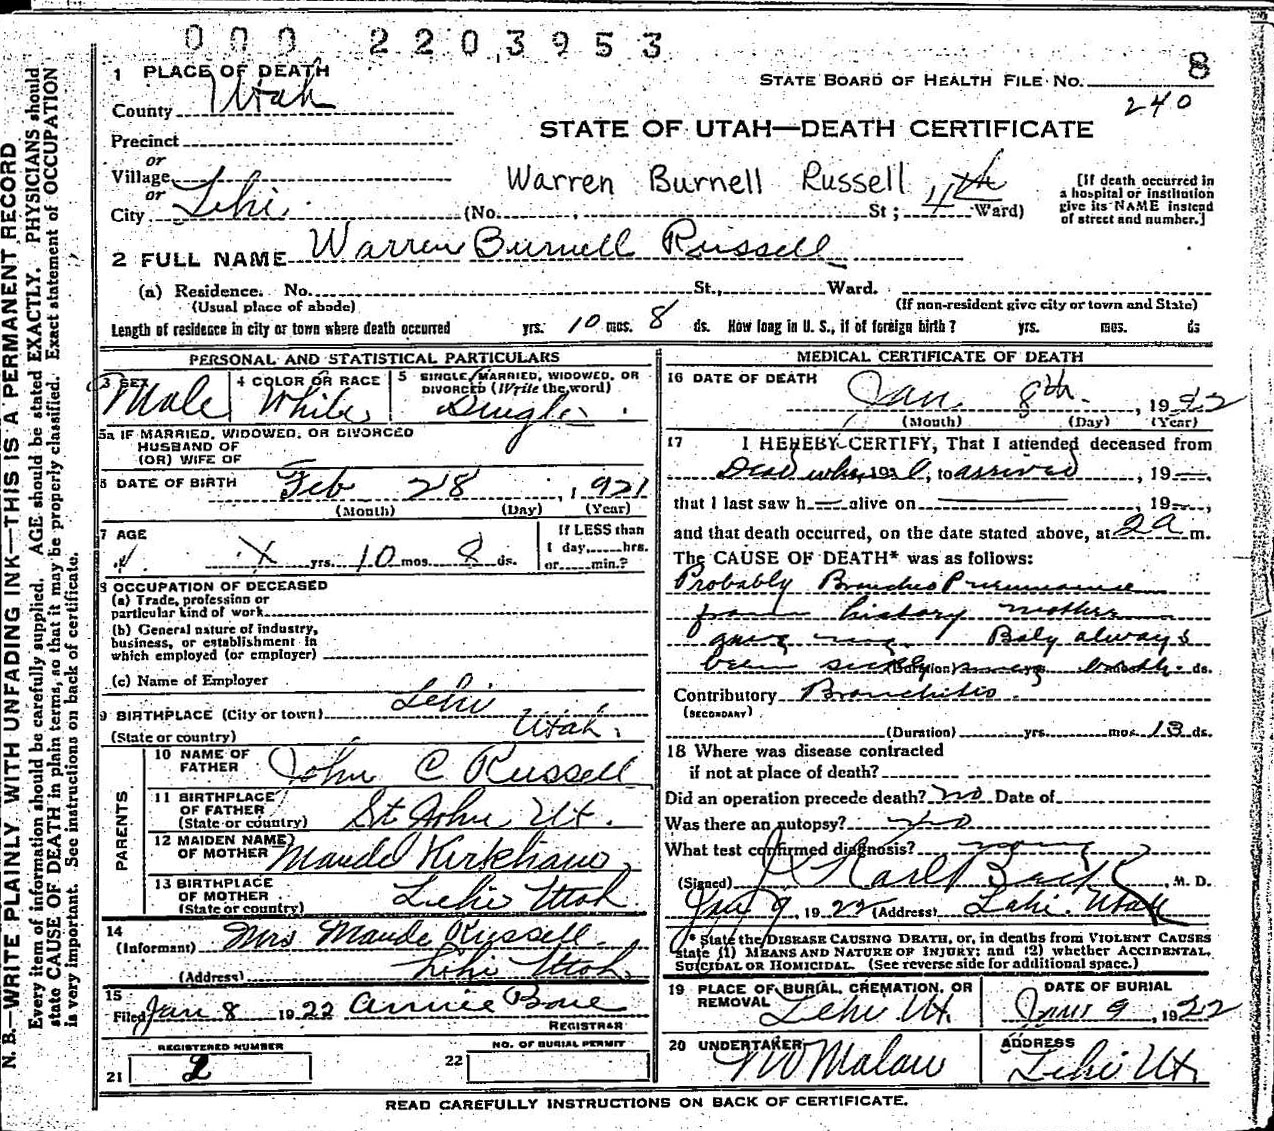 000 2203953
1 PLACE OF DEATH
STATE BOARD OF HEALTH FILE NO. 8
240
County Utah
STATE OF UTAH—DEATH CERTIFICATE
Precinct
or
Village
or
City Lehi
Warren Burnell Russell
(No. St; 4th Ward)
[If death occurred in
a hospital or institution
give its NAME instead
of street and number.]
2 FULL NAME Warren Burnell Russell
(a) Residence. No. St., Ward.
(Usual place of abode)
(If non-resident give city or town and State)
Length of residence in city or town where death occurred yrs. 10 mos. 8 ds. How long in U. S., if of foreign birth? yrs. mos. ds
PERSONAL AND STATISTICAL PARTICULARS
3 SEX
Male
4 COLOR OR RACE
White
5 SINGLE, MARRIED, WIDOWED, OR
DIVORCED (Write the word)
Single
5a IF MARRIED, WIDOWED, OR DIVORCED
HUSBAND OF
(OR) WIFE OF
6 DATE OF BIRTH
Feb 28, 1921
(Month) (Day) (Year)
7 AGE
X yrs. 10 mos. 8 ds.
If LESS than
1 day, hrs.
or min.?
8 OCCUPATION OF DECEASED
(a) Trade, profession or
particular kind of work
(b) General nature of industry,
business, or establishment in
which employed (or employer)
(c) Name of Employer
9 BIRTHPLACE (City or town) Lehi
(State or country) Utah.
PARENTS
10 NAME OF
FATHER John C Russell
11 BIRTHPLACE
OF FATHER
(State or country) St John Ut.
12 MAIDEN NAME
OF MOTHER Maude Kirkham
13 BIRTHPLACE
OF MOTHER
(State or country) Lehi Utah
14
(Informant) Mrs Maude Russell
(Address) Lehi Utah
15
Filed Jan 8 1922 Annie Bone
REGISTRAR
REGISTERED NUMBER
21 2
NO. OF BURIAL PERMIT
22
MEDICAL CERTIFICATE OF DEATH
16 DATE OF DEATH
Jan 8th, 1922
(Month) (Day) (Year)
17 I HEREBY CERTIFY, That I attended deceased from
Dead when I, 19 to arrived, 19—
that I last saw h— alive on —, 19—,
and that death occurred, on the date stated above, at 2a m.
The CAUSE OF DEATH* was as follows:
Probably Broncho Pneumonia
from history mother
gave me. Baby always
been sickly since birth. (Duration) ds.
Contributory Bronchitis
(SECONDARY)
(Duration) yrs. mos. 13 ds.
18 Where was disease contracted
if not at place of death?
Did an operation precede death? no Date of
Was there an autopsy? no
What test confirmed diagnosis? none
(Signed) Karl Back, M. D.
Jan 9, 1922 (Address) Lehi. Utah
* State the DISEASE CAUSING DEATH, or, in deaths from VIOLENT CAUSES
state (1) MEANS AND NATURE OF INJURY; and (2) whether ACCIDENTAL,
SUICIDAL OR HOMICIDAL. (See reverse side for additional space.)
19 PLACE OF BURIAL, CREMATION, OR
REMOVAL Lehi Ut.
DATE OF BURIAL
Jan 9, 1922
20 UNDERTAKER
Malan
ADDRESS
Lehi Ut
READ CAREFULLY INSTRUCTIONS ON BACK OF CERTIFICATE.
N. B.—WRITE PLAINLY WITH UNFADING INK—THIS IS A PERMANENT RECORD
Every item of information should be carefully supplied. AGE should be stated EXACTLY. PHYSICIANS should
state CAUSE OF DEATH in plain terms, so that it may be properly classified. Exact statement of OCCUPATION
is very important. See instructions on back of certificate.